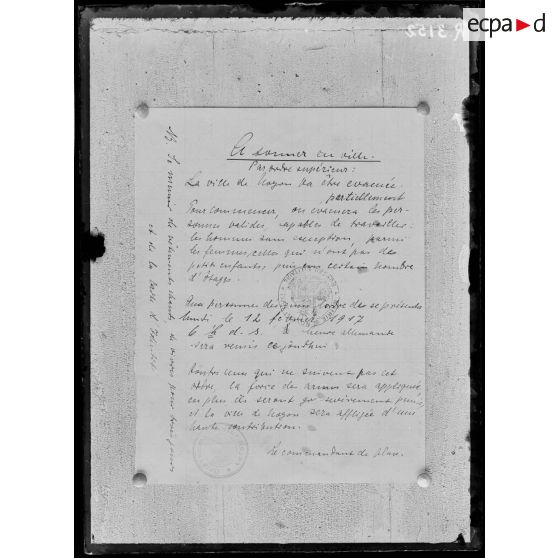 ecpa d
R 3152
A sonner en ville.
Par ordre supérieur:
La ville de Noyon va être evacuée
partiellement
Pour commencer, on évacuera les per-
sonnes valides, capables de travailler:
les hommes sans exception, parmi
les femmes, celles qui n'ont pas des
petits enfants, puis un certain nombre
d'Otages.
personnes ordre des se présenter
lundi le 12 février 1917
6 h d. s. heure allemande
sera remis
Toutes ceux qui ne suivent pas cet
ordre, la force des armes sera appliqué,
en plus ils seront sevèrement punis,
et la ville de Noyon sera affligée d'une
haute contribution.
Le commandant de place.
de vêtements chauds, de vivres pour trois jours
et de la